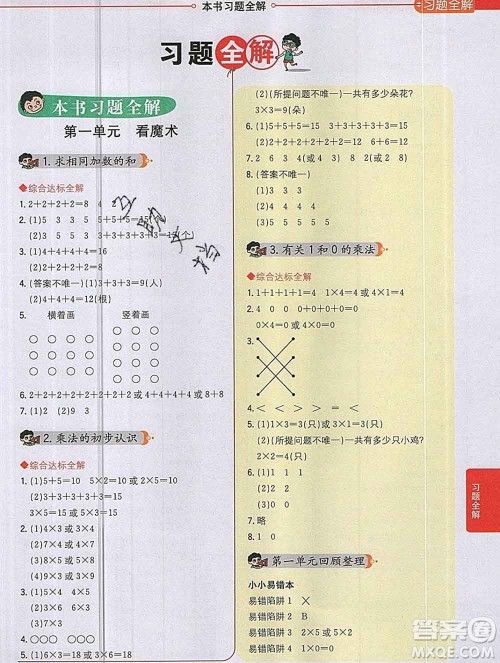 本书习题全解
习题全解
习题全解
本书习题全解
第一单元 看魔术
1. 求相同加数的和
◆综合达标全解
1. 2+2+2+2=8 4 2
2. (1)3 5 5 5 5 5+5+5=15(个)
(2)3 5 3 3 3 3 3+3+3+3+3=15(个)
3. (1)4+4+4+4=16
(2)2+2+2+2+2=10
4. (答案不唯一)(1)3+3+3=9(人)
(2)4+4+4=12(根)
5. 横着画 竖着画
○ ○ ○ ○ ○ ○ ○
○ ○ ○ ○ ○ ○ ○
○ ○ ○ ○ ○ ○ ○
○ ○ ○
6. 2+2+2+2+2+2+2+2 或 4+4+4+4 或 8+8
2. 乘法的初步认识
◆综合达标全解
1. (1)5+5=10 5×2=10 或 2×5=10
(2)3+3+3+3+3=15
5×3=15 或 3×5=15
2. (1)4×3 或 3×4
(2)7×3 或 3×7
(3)6×4 或 4×6
3. (1)5×4 或 4×5
(2)5×7 或 7×5
(3)2×4 或 4×2
4. ○○○ ○○○ ○○○
5. (1)6×3=18 或 3×6=18
(2)(所提问题不唯一)一共有多少朵花?
3×3=9(朵)
6. (1)5+5+5=15 5×3=15 或 3×5=15
7. 2 6 3 4(或 6 2 4 3)
8. (答案不唯一)
3. 有关 1 和 0 的乘法
◆综合达标全解
1. 1+1+1+1=4 1×4=4 或 4×1=4
2. 0+0+0+0=0
0×4=0 或 4×0=0
3.
4. < < < >
5. (1)1×3=3(只) 或 3×1=3(只)
(2)(所提问题不唯一)一共有多少只小鸡?
2×2=4(只)
7. 略
8. 1 0
第一单元回顾整理
小小易错本
易错陷阱 1 ×
易错陷阱 2 B
易错陷阱 3 2×5 或 5×2
易错陷阱 4 4×0=0
习题全解
答案圈
MXQE.COM